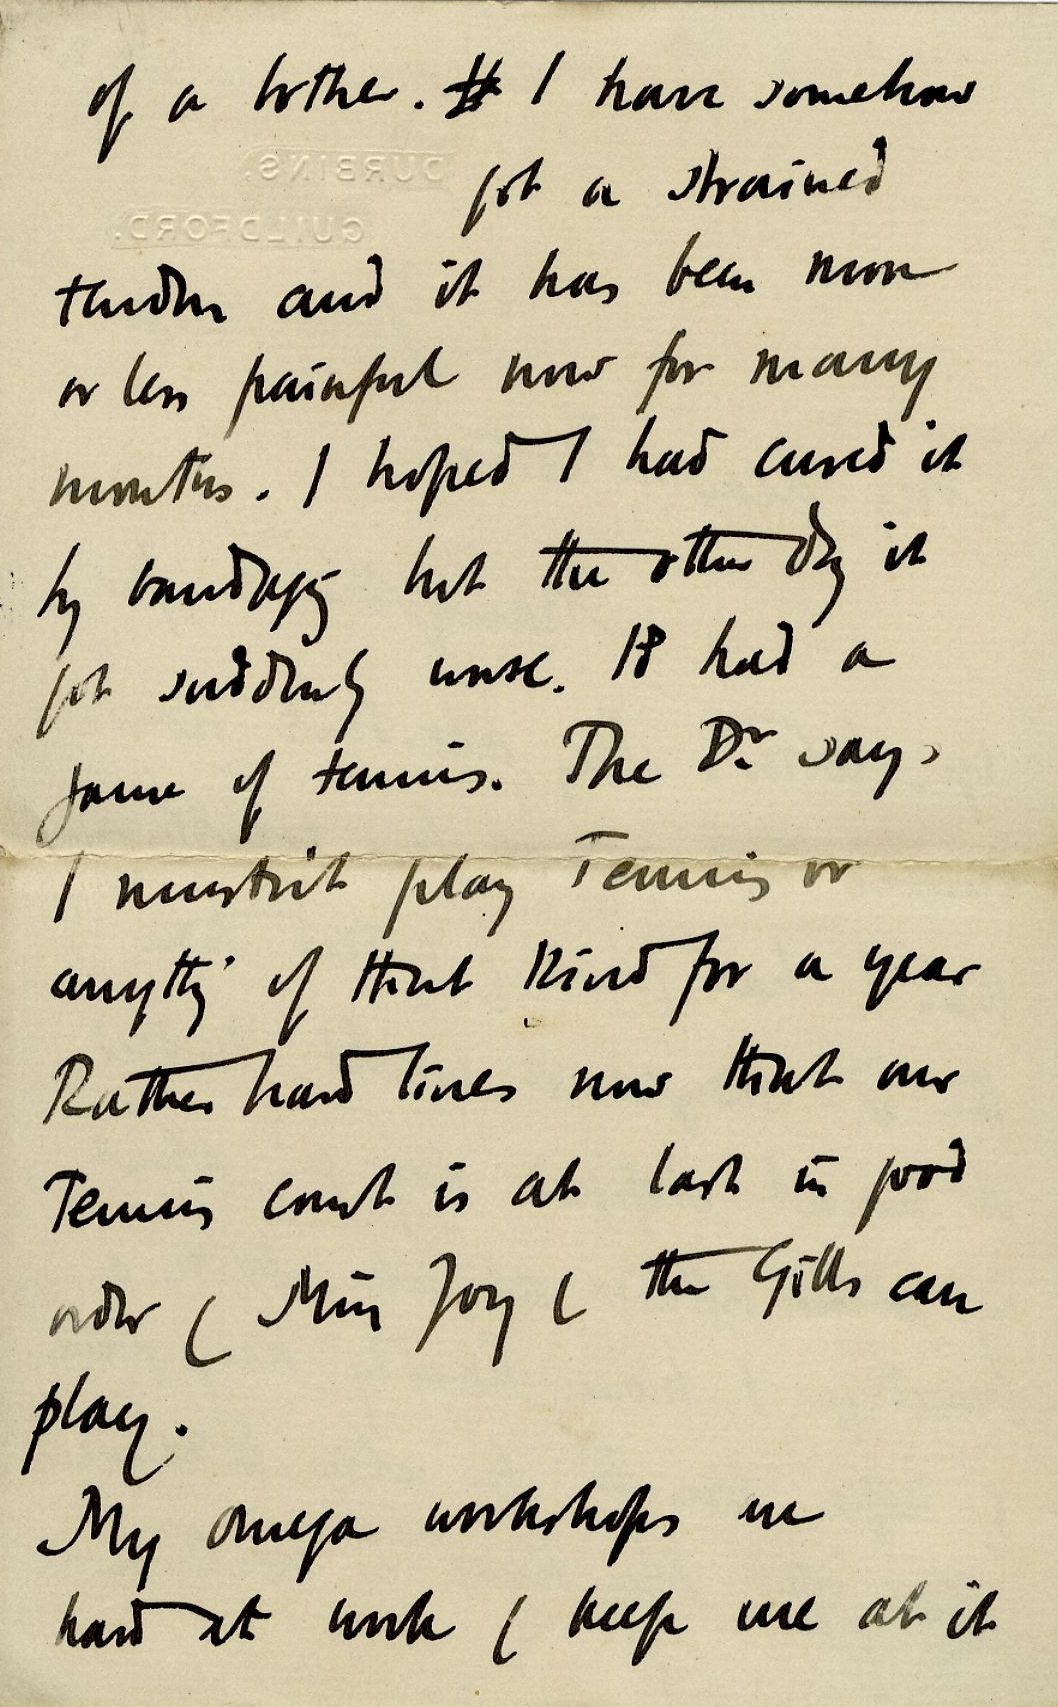 of a bother. I have somehow
DURBINS.
got a strained
GUILDFORD.
tendon and it has been more
or less painful now for many
months. I hoped I had cured it
by bandaging but the other day it
got suddenly worse. I had a
game of tennis. The Dr says
I mustn't play Tennis or
anything of that kind for a year
Rather hard lines now that our
Tennis court is at last in good
order ( Miss Joy ( the Gills can
play.
My Omega workshops are
hard at work ( keep me at it